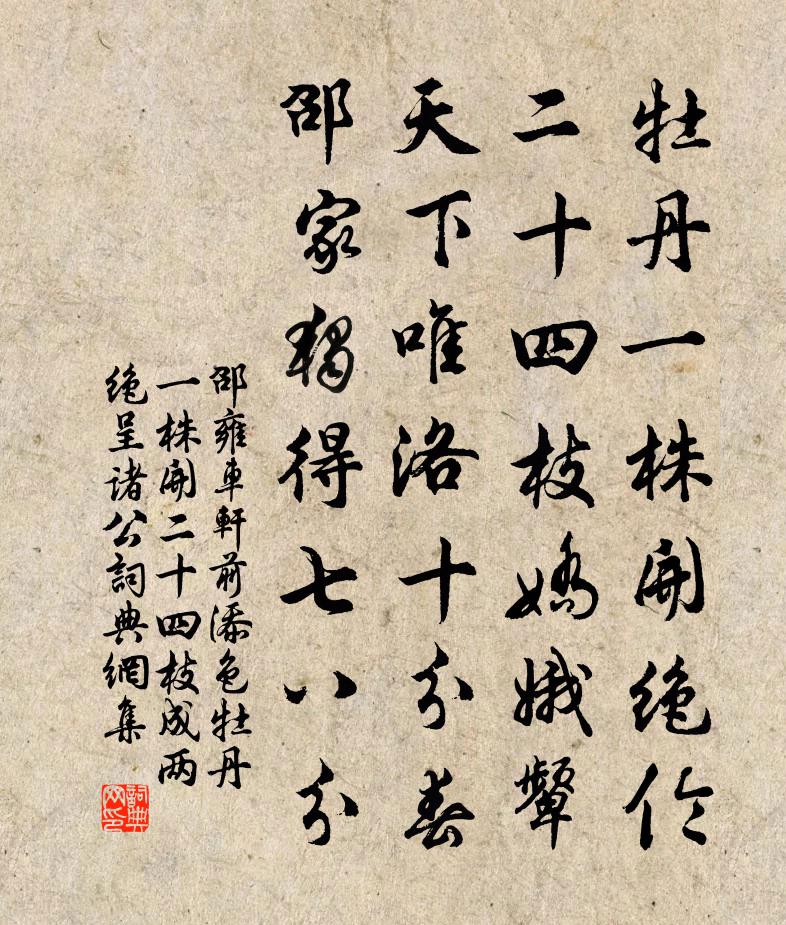 牡丹一株開絶伦
二十四枝嬌娥顰
天下唯洛十分春
邵家獨得七八分
邵雍車軒前添色牡丹
一株開二十四枝成两
絶呈諸公詞典網集
詞典
网印